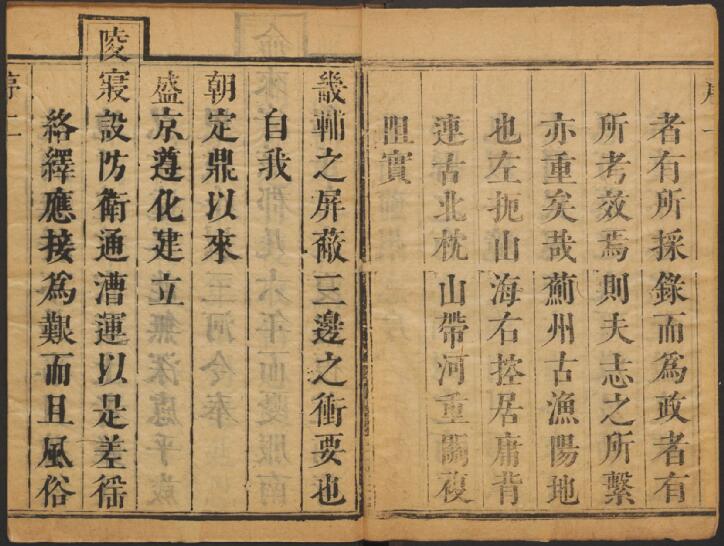 者有所採錄而爲政者有
所考效焉則夫志之所繫
亦重矣哉薊州古漁陽地
也左扼山海右控居庸背
連古北枕山帶河重關複
阻實
畿輔之屏蔽三邊之衝要也
自我
朝定鼎以來
盛京遵化建立
陵寢設防衛通漕運以是差徭
絡繹應接爲艱而且風俗